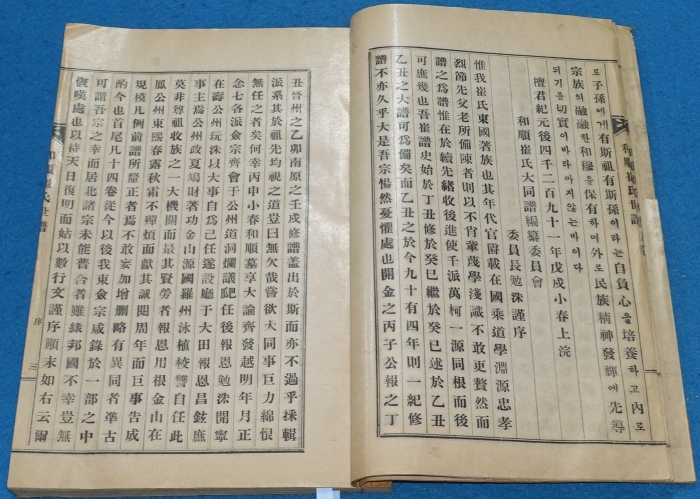 로子孫에게有斯祖有斯孫이라는自負心을培養하고內로
宗族의融融한和穆을保有하며外로民族精神發輝에先導
되기를切實이바라마지않는바이다
檀君紀元後四千二百九十一年戊戌小春上浣
和順崔氏大同譜編纂委員會
委員長勉洙謹序
惟我崔氏東國著族也其年代官爵載在國乘道學淵源忠孝
烈節先父老所備陳者則以不肖輩蔑學淺識不敢更贅然而
譜之爲譜惟在於續先緖收後進使千派萬柯一源同根而後
可庶幾也吾崔譜史始於丁丑修於癸巳繼於癸巳述於乙丑
乙丑之大譜可爲備矣而乙丑之於今九十有四年則一紀修
譜不亦久乎大是吾宗惕然憂懼處也開金之丙子公報之丁
丑晉州之乙卯南原之壬戌修譜盖出於斯而亦不過乎採輯
派系其於祖先均視之道豈曰無欠哉嘗欲大同事巨力綿恨
無任之者矣何幸丙申小春和順墓享大論齊發越明年月正
念七各派僉宗齊會于公州道洞爛議
任後報恩勉洙開寧
在壽公州玩洙以大事自爲己任遂設廳于大田報恩昌鉉庶
事主爲公州政夏鳩財著功金山源國羅州泳植棱譻自任此
莫非尊祖收族之一大機關而最其賢勞者報恩用根金山在
鳳公州東熙春露秋霜不憚煩而獻其誠閱周年而巨事告成
規模凡例前譜所釐正者爲不敢妄加增刪略有異同者準古
酌今也首尾凡十四卷從今以後我東僉宗咸錄於一部之中
可謂吾宗之幸而居北諸宗未能普合者雖緣邦國不幸豈無
慨嘆處也以待天日復明而姑以數行文謹序顚末如右云爾
和順崔氏世譜
序
三